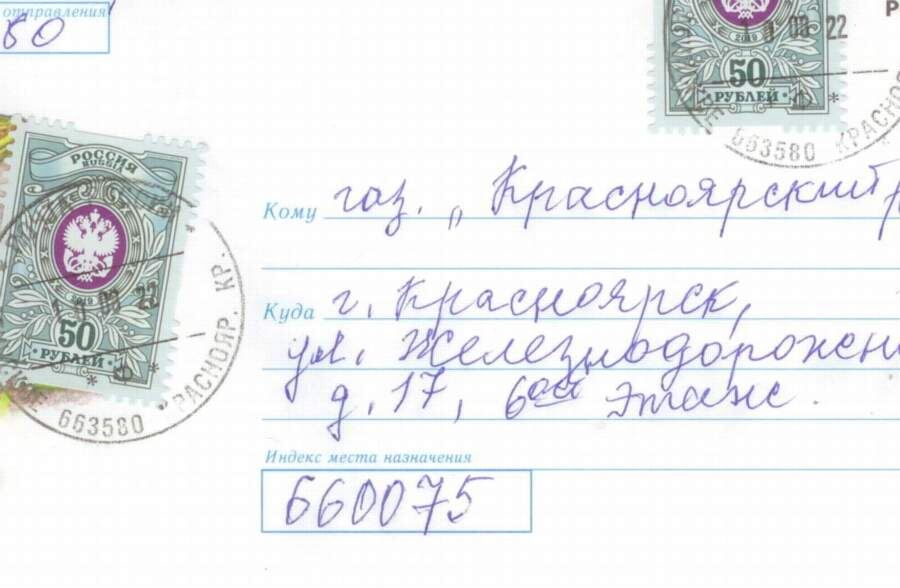 отправления
80
2019
1 08 22
50
РУБЛЕЙ
663580 КРАСНО
РОССИЯ
RUSSIA
2019
08 22
50
РУБЛЕЙ
663580 КРАСНОЯР. КР.
Кому газ. „Красноярский р
Куда г. Красноярск,
ул. Железнодорожн
д. 17, 6ой этаж.
Индекс места назначения
660075